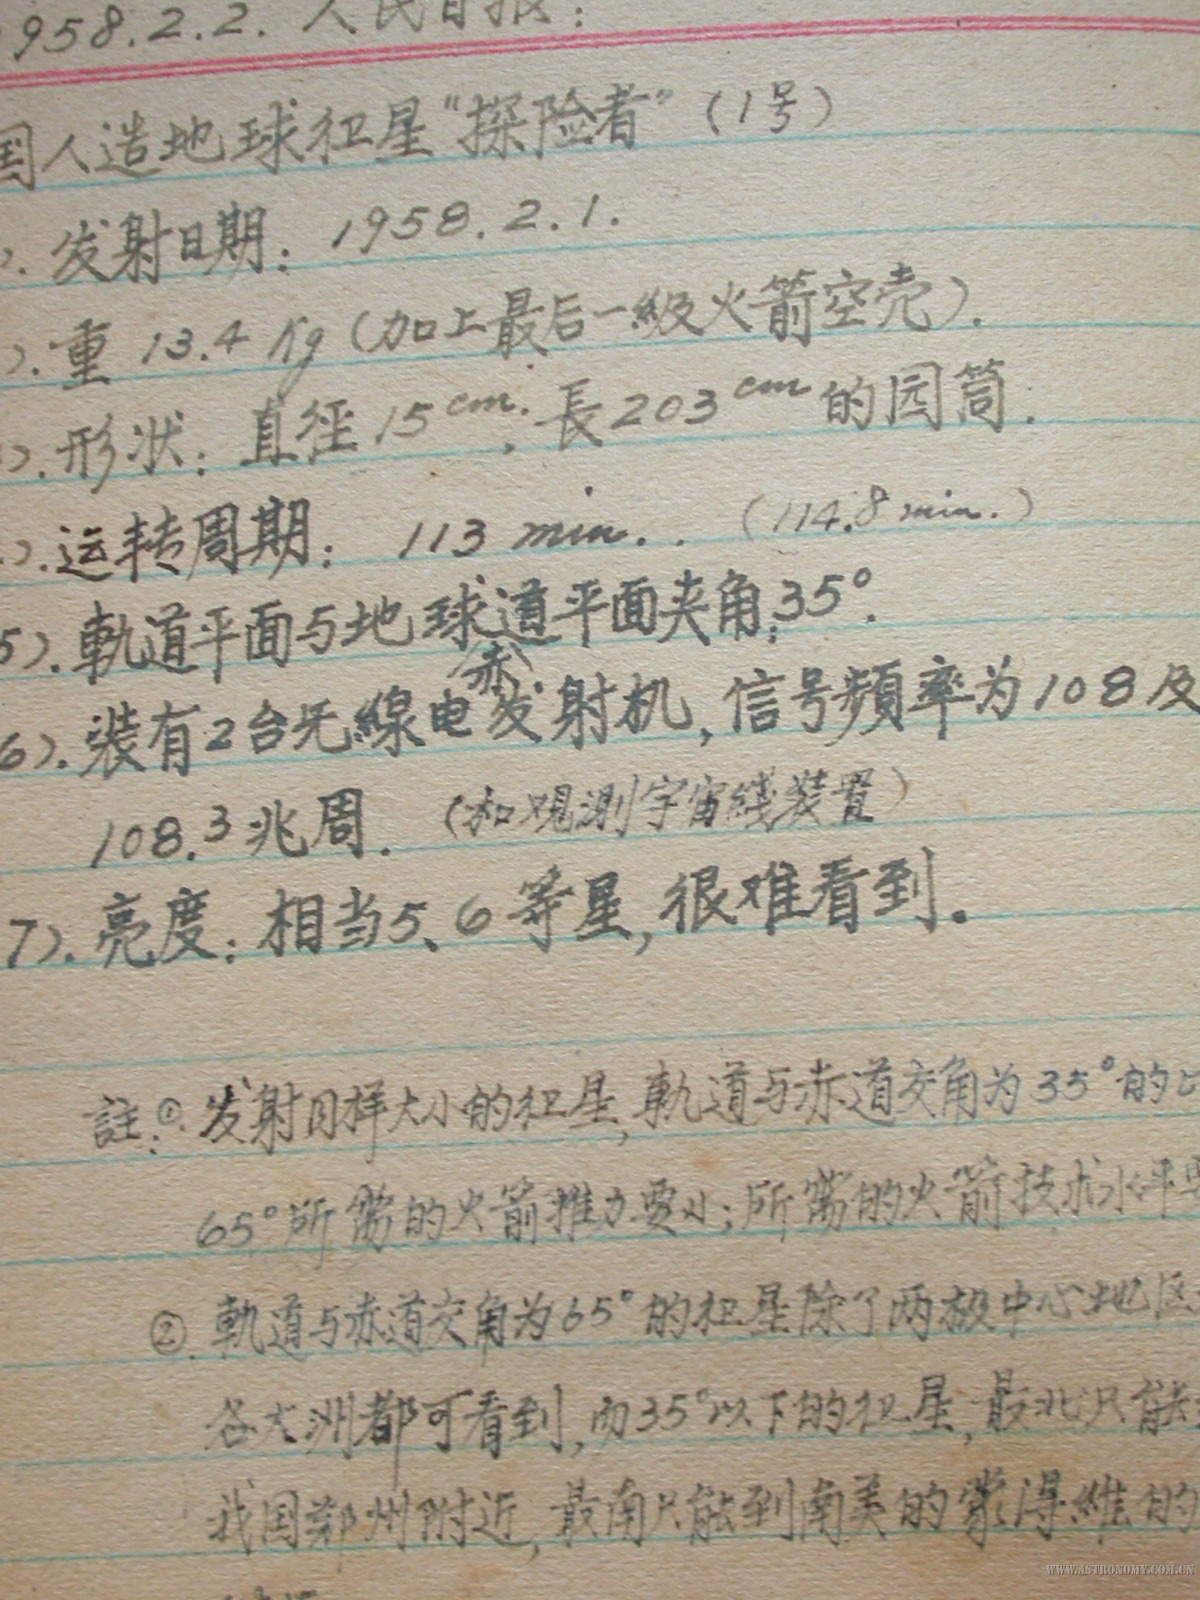 1958.2.2. 人民日报:
国人造地球卫星“探险者”(1号)
). 发射日期: 1958.2.1.
). 重 13.4 Kg (加上最后一級火箭空壳).
). 形状: 直徑 15 cm., 長 203 cm 的园筒.
). 运转周期: 113 min.. (114.8 min.)
5). 軌道平面与地球赤道平面夹角: 35°.
6). 裝有2台无線电发射机, 信号頻率为108及
108.3兆周. (和观测宇宙线装置)
7). 亮度: 相当5、6等星, 很难看到.
註: ①. 发射同样大小的卫星, 軌道与赤道交角为35°的比
65°所需的火箭推力要小; 所需的火箭技术水平要
②. 軌道与赤道交角为65°的卫星除了两极中心地区
各大洲都可看到, 而35°以下的卫星, 最北只能
我国郑州附近, 最南只能到南美的蒙得維的
WWW.ASTRONOMY.COM.CN